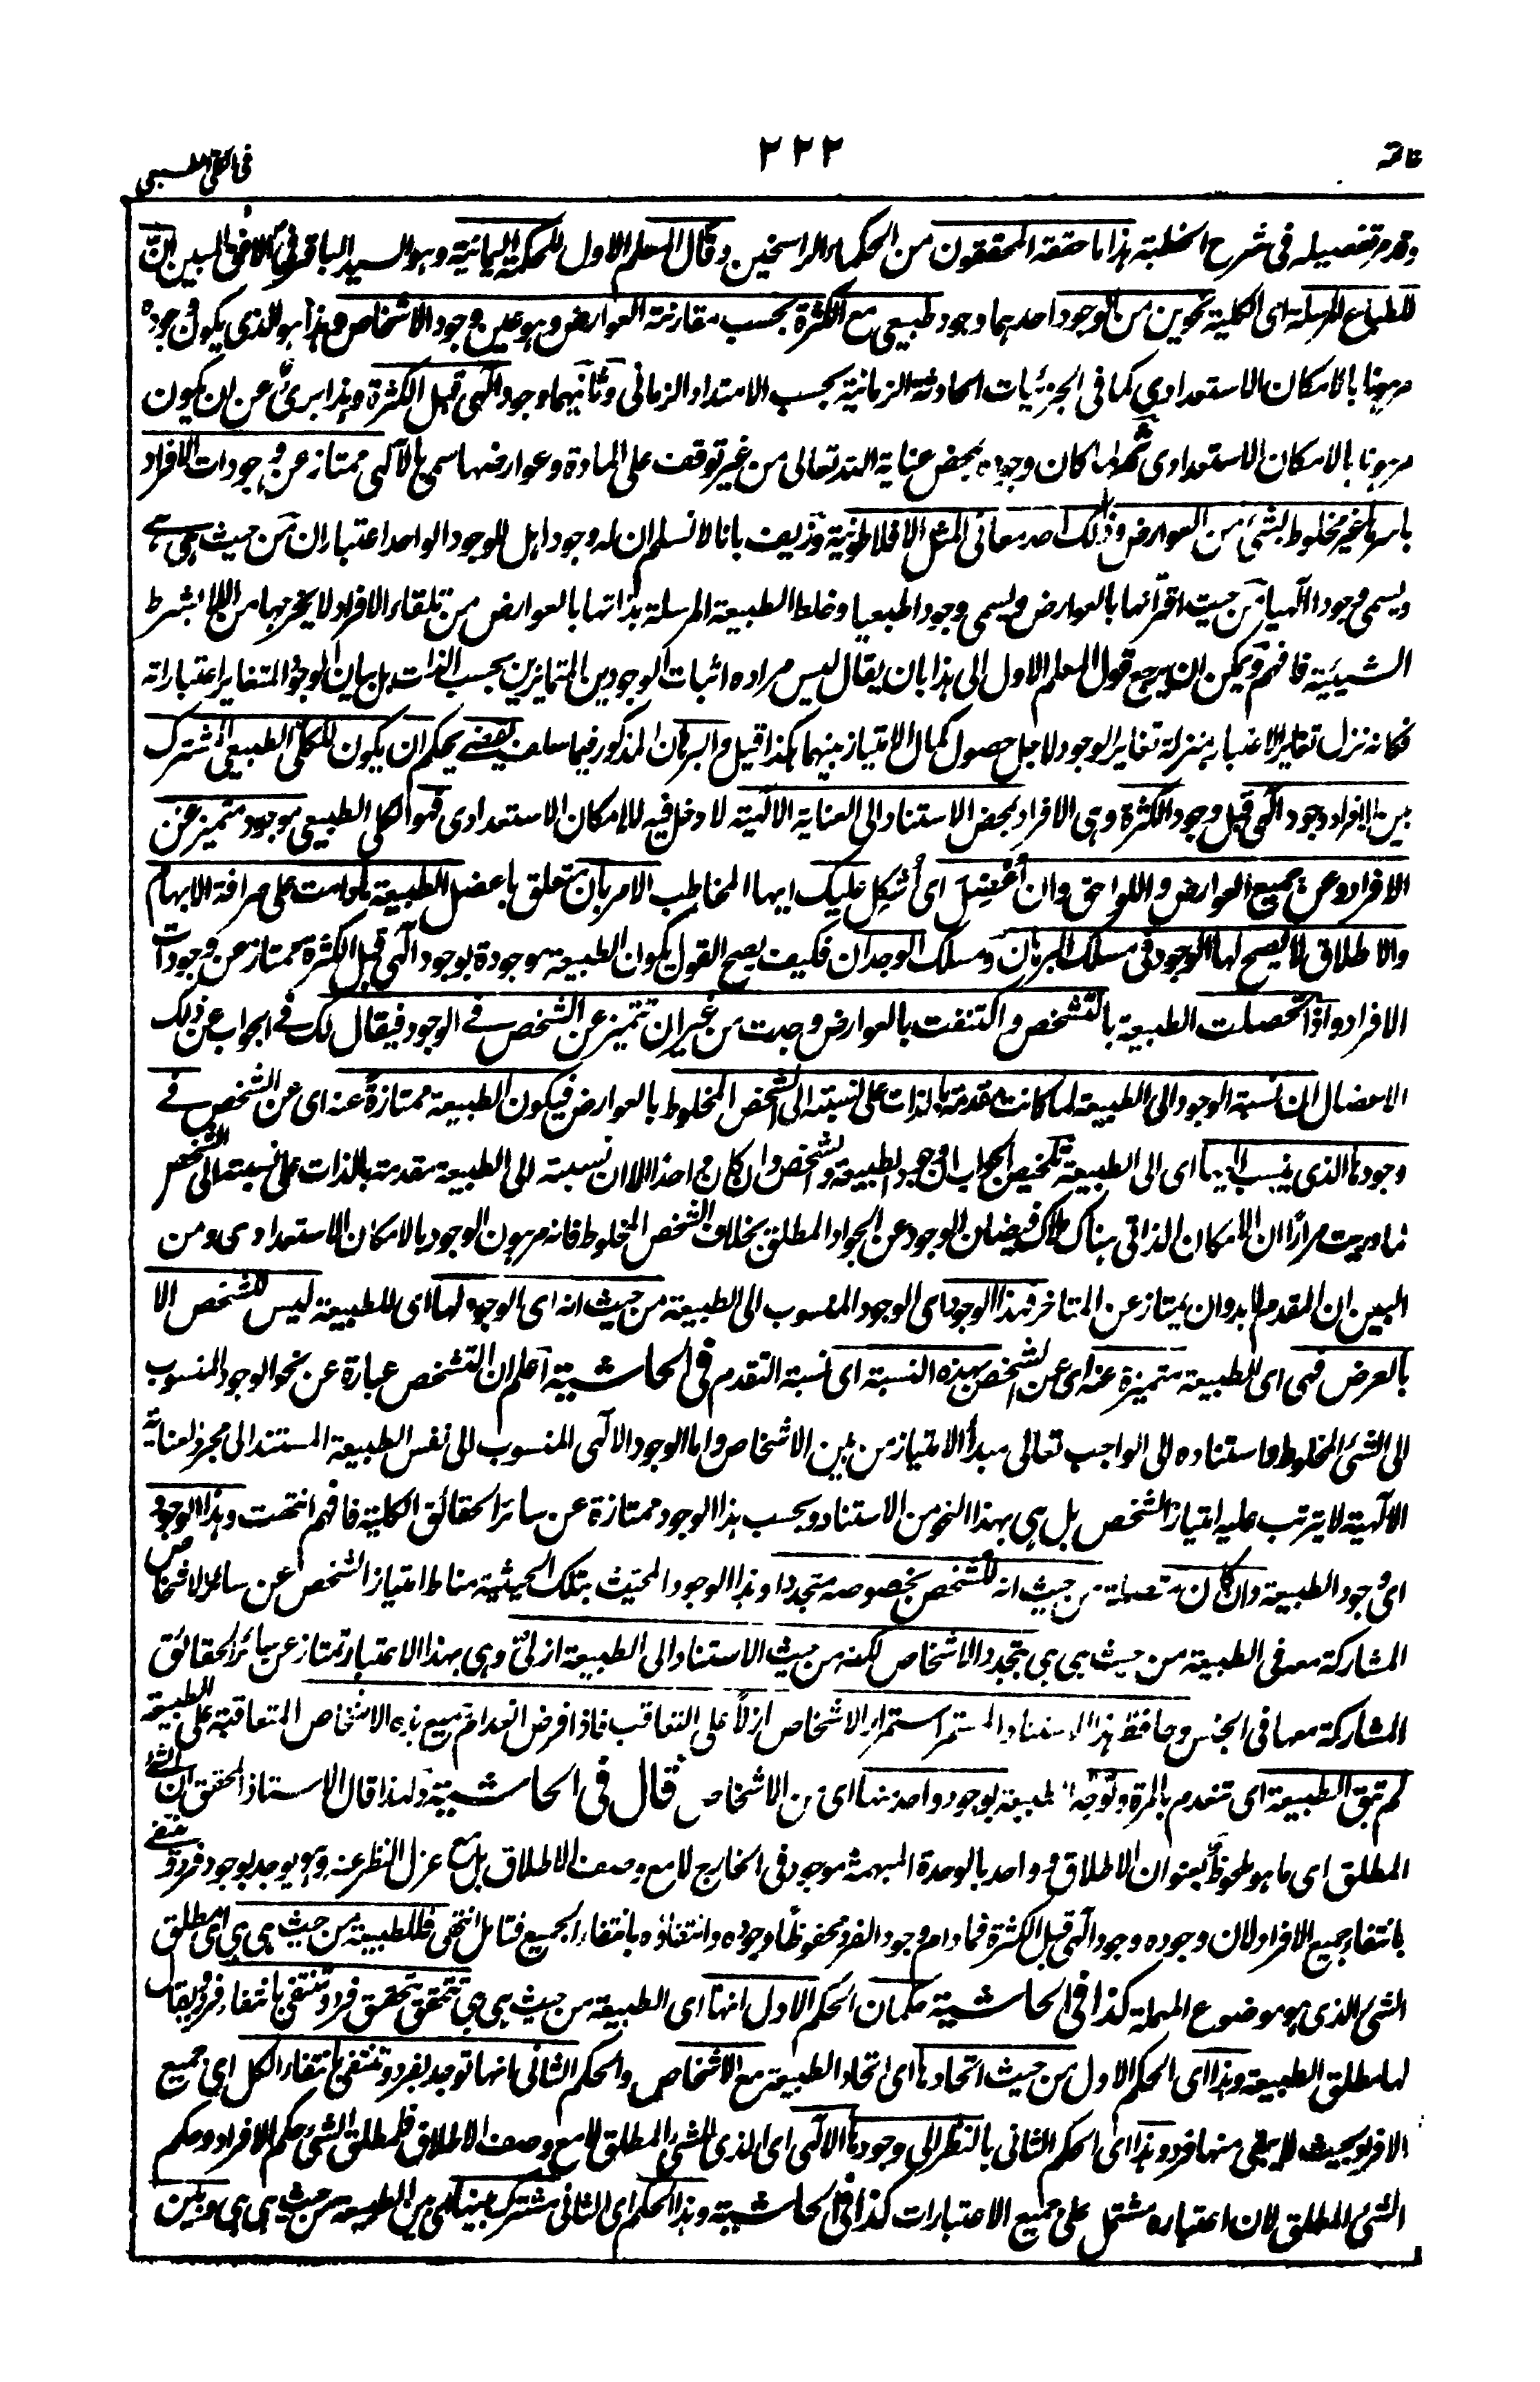 خاتمة
٢٢٢
فى الكلى الطبيعى
وقد مر تفصيله فى شرح الخطبة هذا ما حققه المحققون من الحكماء الراسخين وقال المعلم الاول للحكمة اليمانية وهو السيد الباقر فى الافق المبين ان
للطبائع المرسلة اى الكلية نحوين من الوجود احدهما وجود طبيعى مع الكثرة بحسب مقارنة العوارض وهو عين وجود الاشخاص وهذا هو الذى يكون وجوده
مرهونا بالامكان الاستعدادى كما فى الجزئيات الحادثة الزمانية بحسب الامتداد الزمانى وثانيهما وجود الٰهى قبل الكثرة وهذا برئ عن ان يكون
مرهونا بالامكان الاستعدادى ثم لما كان وجوده بمحض عناية الله تعالى من غير توقف على المادة وعوارضها سمى بالآلٰهى ممتاز عن وجودات الافراد
باسرها غير مخلوط بشئ من العوارض وذلك احد معانى المثل الافلاطونية وزيف بانا لا نسلم ان له وجودا بل للوجود الواحد اعتباران من حيث هى هى
ويسمى وجودا الٰهيا ومن حيث اقترانها بالعوارض ويسمى وجودا طبعيا وخلط الطبيعة المرسلة بذاتها بالعوارض من تلقاء الافراد لا يخرجها من اللا بشرط
الشيئية فافهم ويمكن ان يرجع قول المعلم الاول الى هذا بان يقال ليس مراده اثبات الوجودين المتمايزين بحسب الذات بل بيان الوجود المتغاير اعتباراته
فكانه نزل تغاير الاعتبار بمنزلة تغاير الوجود لاجل حصول كمال الامتياز بينهما هكذا قيل والبرهان المذكور فيما سلف يقضى يحكم ان يكون للكلى الطبيعى المشترك
بين الافراد وجود الٰهى قبل وجود الكثرة وهى الافراد بمحض الاستناد الى العناية الالٰهية لا دخل فيه للامكان الاستعدادى فهو اى الكلى الطبيعى موجود متميز عن
الافراد وعن جميع العوارض واللواحق وان اُعضِل اى اُشكِل عليك ايها المخاطب الامر بان متعلق باعضل الطبيعة ما دامت على صرافة الابهام
والاطلاق لا يصح لها الوجود فى مسلك البرهان ومسلك الوجدان فكيف يصح القول بكون الطبيعة موجودة بوجود الٰهى قبل الكثرة ممتاز عن وجودات
الافراد واذا تحصلت الطبيعة بالتشخص واكتنفت بالعوارض وجدت من غير ان تتميز عن الشخص فى الوجود فيقال لك فى الجواب عن ذلك
الاعضال ان نسبة الوجود الى الطبيعة لما كانت متقدمة بالذات على نسبته الى الشخص المخلوط بالعوارض فيكون الطبيعة ممتازةً عنه اى عن الشخص فى
وجودها الذى ينسب اليها اى الى الطبيعة تلخيص الجواب ان وجود الطبيعة والشخص وان كان واحدا الا ان نسبته الى الطبيعة متقدمة بالذات على نسبته الى الشخص
لما دريت مرارًا ان الامكان الذاتى هناك ملاك فيضان الوجود عن الجواد المطلق بخلاف الشخص المخلوط فانه مرهون الوجود بالامكان الاستعدادى ومن
البين ان المقدم لابد وان يمتاز عن المتاخر فهذا الوجود اى الوجود المنسوب الى الطبيعة من حيث انه اى الوجود لها اى للطبيعة ليس للشخص الا
بالعرض فهى اى الطبيعة متميزة عنه اى عن الشخص بهذه النسبة اى نسبة التقدم فى الحاشية اعلم ان التشخص عبارة عن نحو الوجود المنسوب
الى الشئ المخلوط واستناده الى الواجب تعالى مبدأ الامتياز من بين الاشخاص واما الوجود الالٰهى المنسوب الى نفس الطبيعة المستند الى مجرد العناية
الالٰهية لا يترتب عليه امتياز الشخص بل هى بهذا النحو من الاستناد وبحسب هذا الوجود ممتازة عن سائر الحقائق الكلية فافهم انتهت وهذا الوجود
اى وجود الطبيعة وان كان من حيث انه للشخص بخصوصه متجددا وهذا الوجود المحيث بتلك الحيثية مناط امتياز الشخص عن سائر الاشخاص
المشاركة معه فى الطبيعة من حيث هى هى بتجدد الاشخاص لكنه من حيث الاستناد الى الطبيعة ازلىٌّ وهى بهذا الاعتبار تمتاز عن سائر الحقائق
المشاركة معها فى الجنس وحافظ هذا الاستناد المستمر استمرار الاشخاص ازلًا على التعاقب فاذا فرض انعدام جميع هذه الاشخاص المتعاقبة على الطبيعة
لم تبق الطبيعة اى تنعدم بالمرة وتوجد الطبيعة بوجود واحد منها اى من الاشخاص قال فى الحاشية ولهذا قال الاستاذ المحقق ان الشئ
المطلق اى ما هو ملحوظ بعنوان الاطلاق وواحد بالوحدة المبهمة موجود فى الخارج لا مع وصف الاطلاق بل مع عزل النظر عنه وهو يوجد بوجود فرد وينتفى
بانتفاء جميع الافراد لان وجوده وجود الٰهى قبل الكثرة فما دام وجود الفرد محفوظًا وجوده وانتفاؤه بانتفاء الجميع فتامل انتهى فللطبيعة من حيث هى هى اى مطلق
الشئ الذى هو موضوع المهملة كذا فى الحاشية حكمان الحكم الاول انها اى الطبيعة من حيث هى هى تتحقق بتحقق فرد وتنتفى بانتفاء فرد ويقال
لها مطلق الطبيعة وهذا اى الحكم الاول من حيث اتحادها اى اتحاد الطبيعة مع الاشخاص والحكم الثانى انها توجد بفرد وتنتفى بانتفاء الكل اى جميع
الافراد بحيث لا يبقى منها فرد وهذا اى الحكم الثانى بالنظر الى وجودها الالٰهى اى الذى للشئ المطلق لا مع وصف الاطلاق فلمطلق الشئ حكم الافراد وحكم
الشئ المطلق لان اعتباره مشتمل على جميع الاعتبارات كذا فى الحاشية وهذا الحكم اى الثانى مشترك بينها اى بين الطبيعة من حيث هى هى وبين